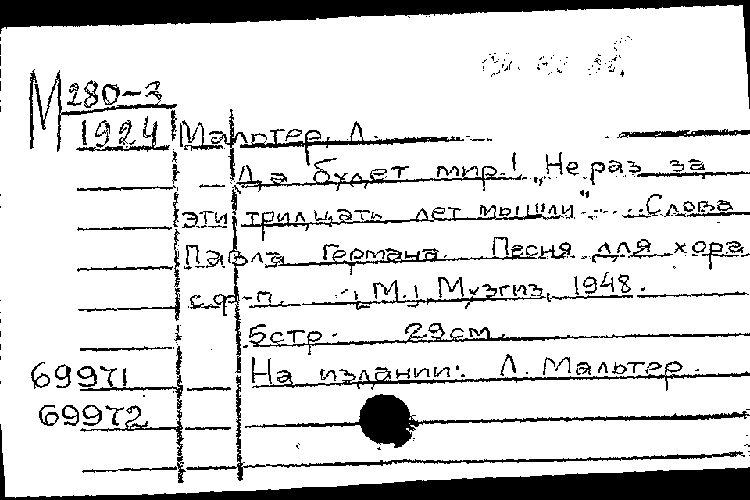 М 280-3
1924
Мальтер, Л.
Да будет мир! „Не раз за
эти тридцать лет мы шли"... Слова
Павла Германа. Песня для хора
с ф-п. [М.] Музгиз, 1948.
5 стр. 29 см.
69971 На издании: Л. Мальтер.
69972